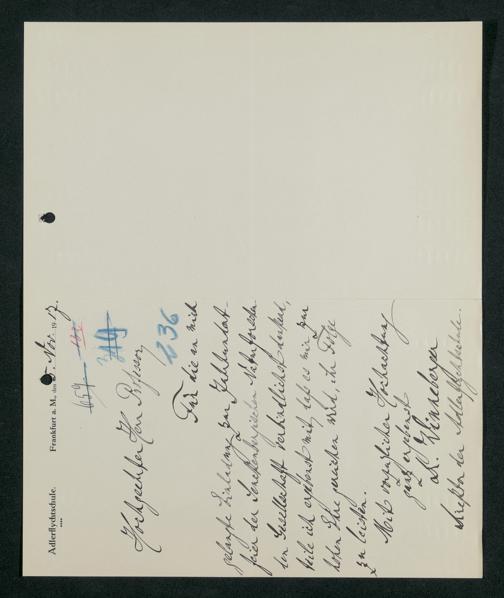 Adlerflychtschule.
Frankfurt a. M., den Nov. 1917.
654
B 36
Hochgeehrter Herr
Für die an mich
gelangte Einladung zur Jahrhundert-
feier der Senckenbergischen Naturforschen-
den Gesellschaft verbindlichst dankend,
teile ich ergebenst mit, daß es mir zur
hohen Ehre gereichen wird, ihr Folge
zu leisten.
Mit vorzüglicher Hochachtung
ganz ergebenst
Dr.
Direktor der Adlerflychtschule.